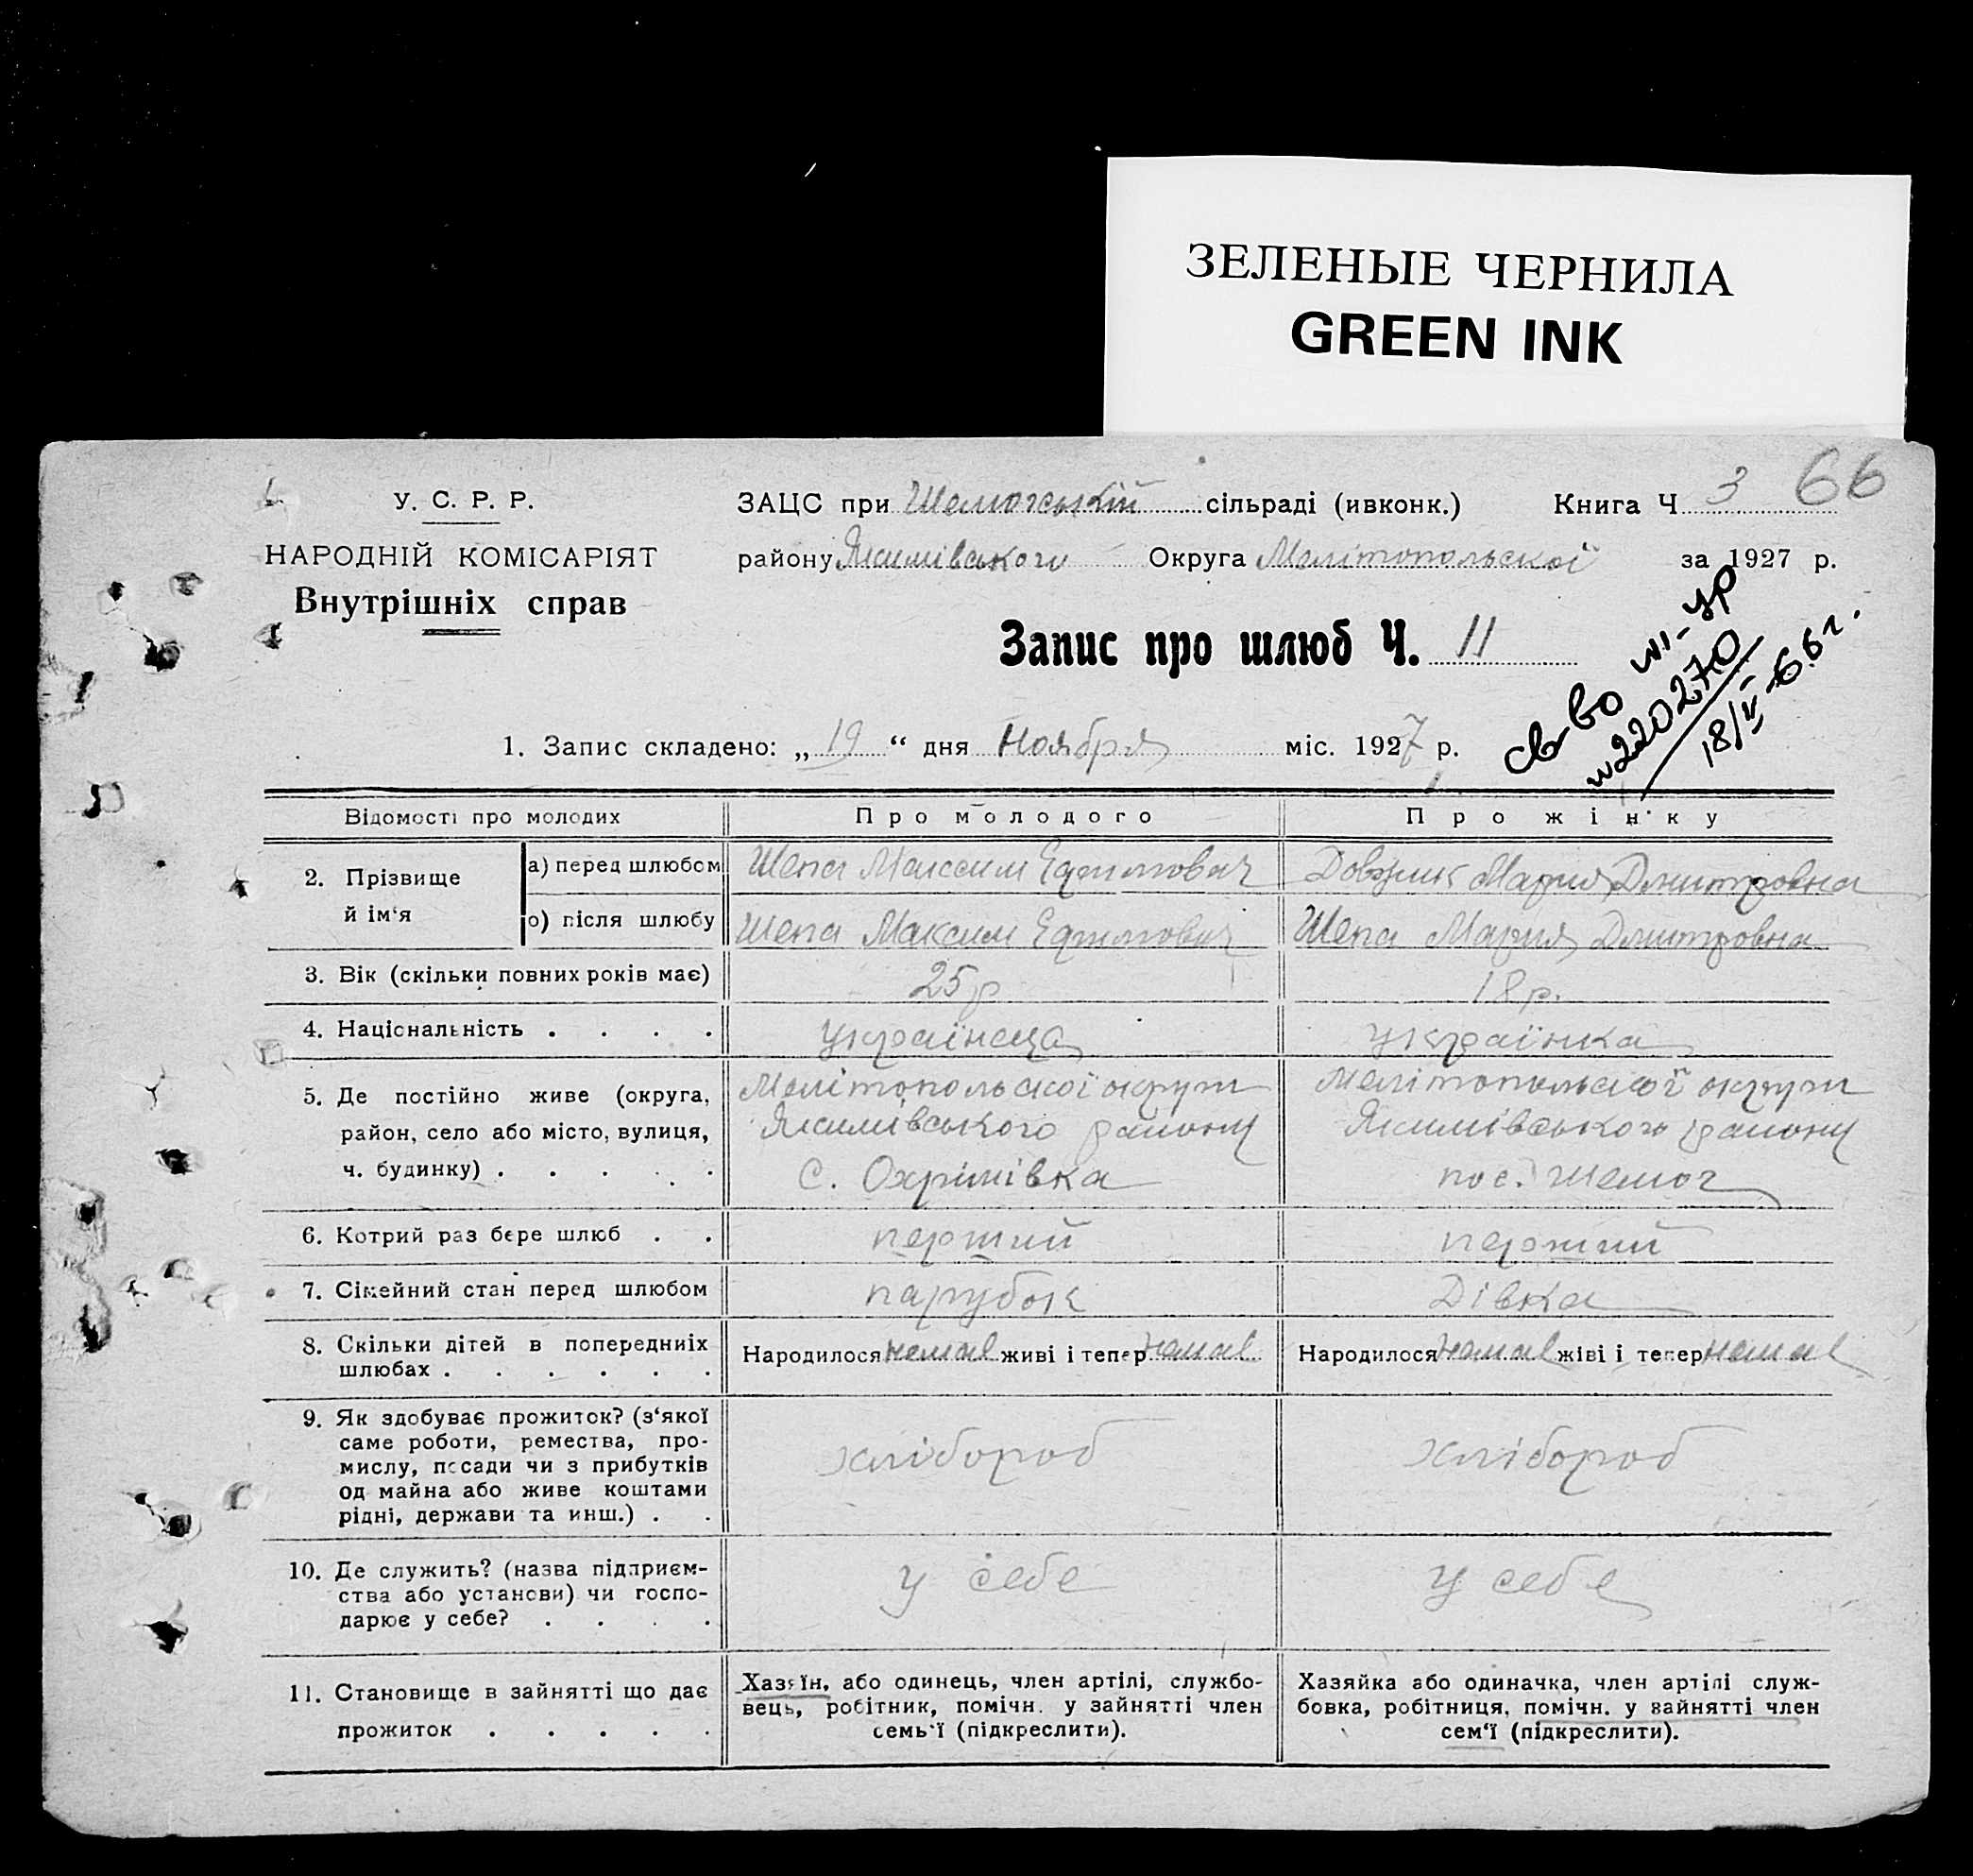 ЗЕЛЕНЫЕ ЧЕРНИЛА
GREEN INK
У. С. Р. Р.
НАРОДНІЙ КОМІСАРІЯТ
Внутрішніх справ
ЗАЦС при Шелюгській сільраді (ивконк.) Книга Ч 3 66
району Якимівського Округа Мелітопольскої за 1927 р.
Запис про шлюб Ч. 11
св-во
220270
1. Запис складено: „ 19 “ дня Ноября міс. 1927 р.
Відомості про молодих Про молодого Про жінку
2. Прізвище й ім‘я
а) перед шлюбом Шепа Максим Ефимович Мария Дмитровна
о) після шлюбу Шепа Максим Ефимович Шепа Мария Дмитровна
3. Вік (скільки повних років має) 25 р 18 р.
4. Національність . . . . українець українка
5. Де постійно живе (округа, Мелітопольскої округи Мелітопольскої округи
район, село або місто, вулиця, Якимівського району Якимівського району
ч. будинку) . . . . . С. Охрімівка пос. Шелюг
6. Котрий раз бере шлюб . . перший перший
7. Сімейний стан перед шлюбом парубок Дівка
8. Скільки дітей в попередниіх Народилося немає живі і тепер немає Народилося немає жіві і тепер немає
шлюбах . . . . . .
9. Як здобуває прожиток? (з‘якої
саме роботи, ремества, про-
мислу, посади чи з прибутків хлібороб хлібороб
од майна або живе коштами
рідні, держави та инш.) . .
10. Де служить? (назва підприєм-
ства або установи) чи госпо- у себе у себе
дарює у себе? . . . .
11. Становище в зайнятті що дає
прожиток . . . . .
Хазяїн, або одинець, член артілі, службо-
вець, робітник, помічн. у зайнятті член
семь‘ї (підкреслити).
Хазяйка або одиначка, член артілі служ-
бовка, робітниця, помічн. у зайнятті член
сем‘ї (підкреслити).